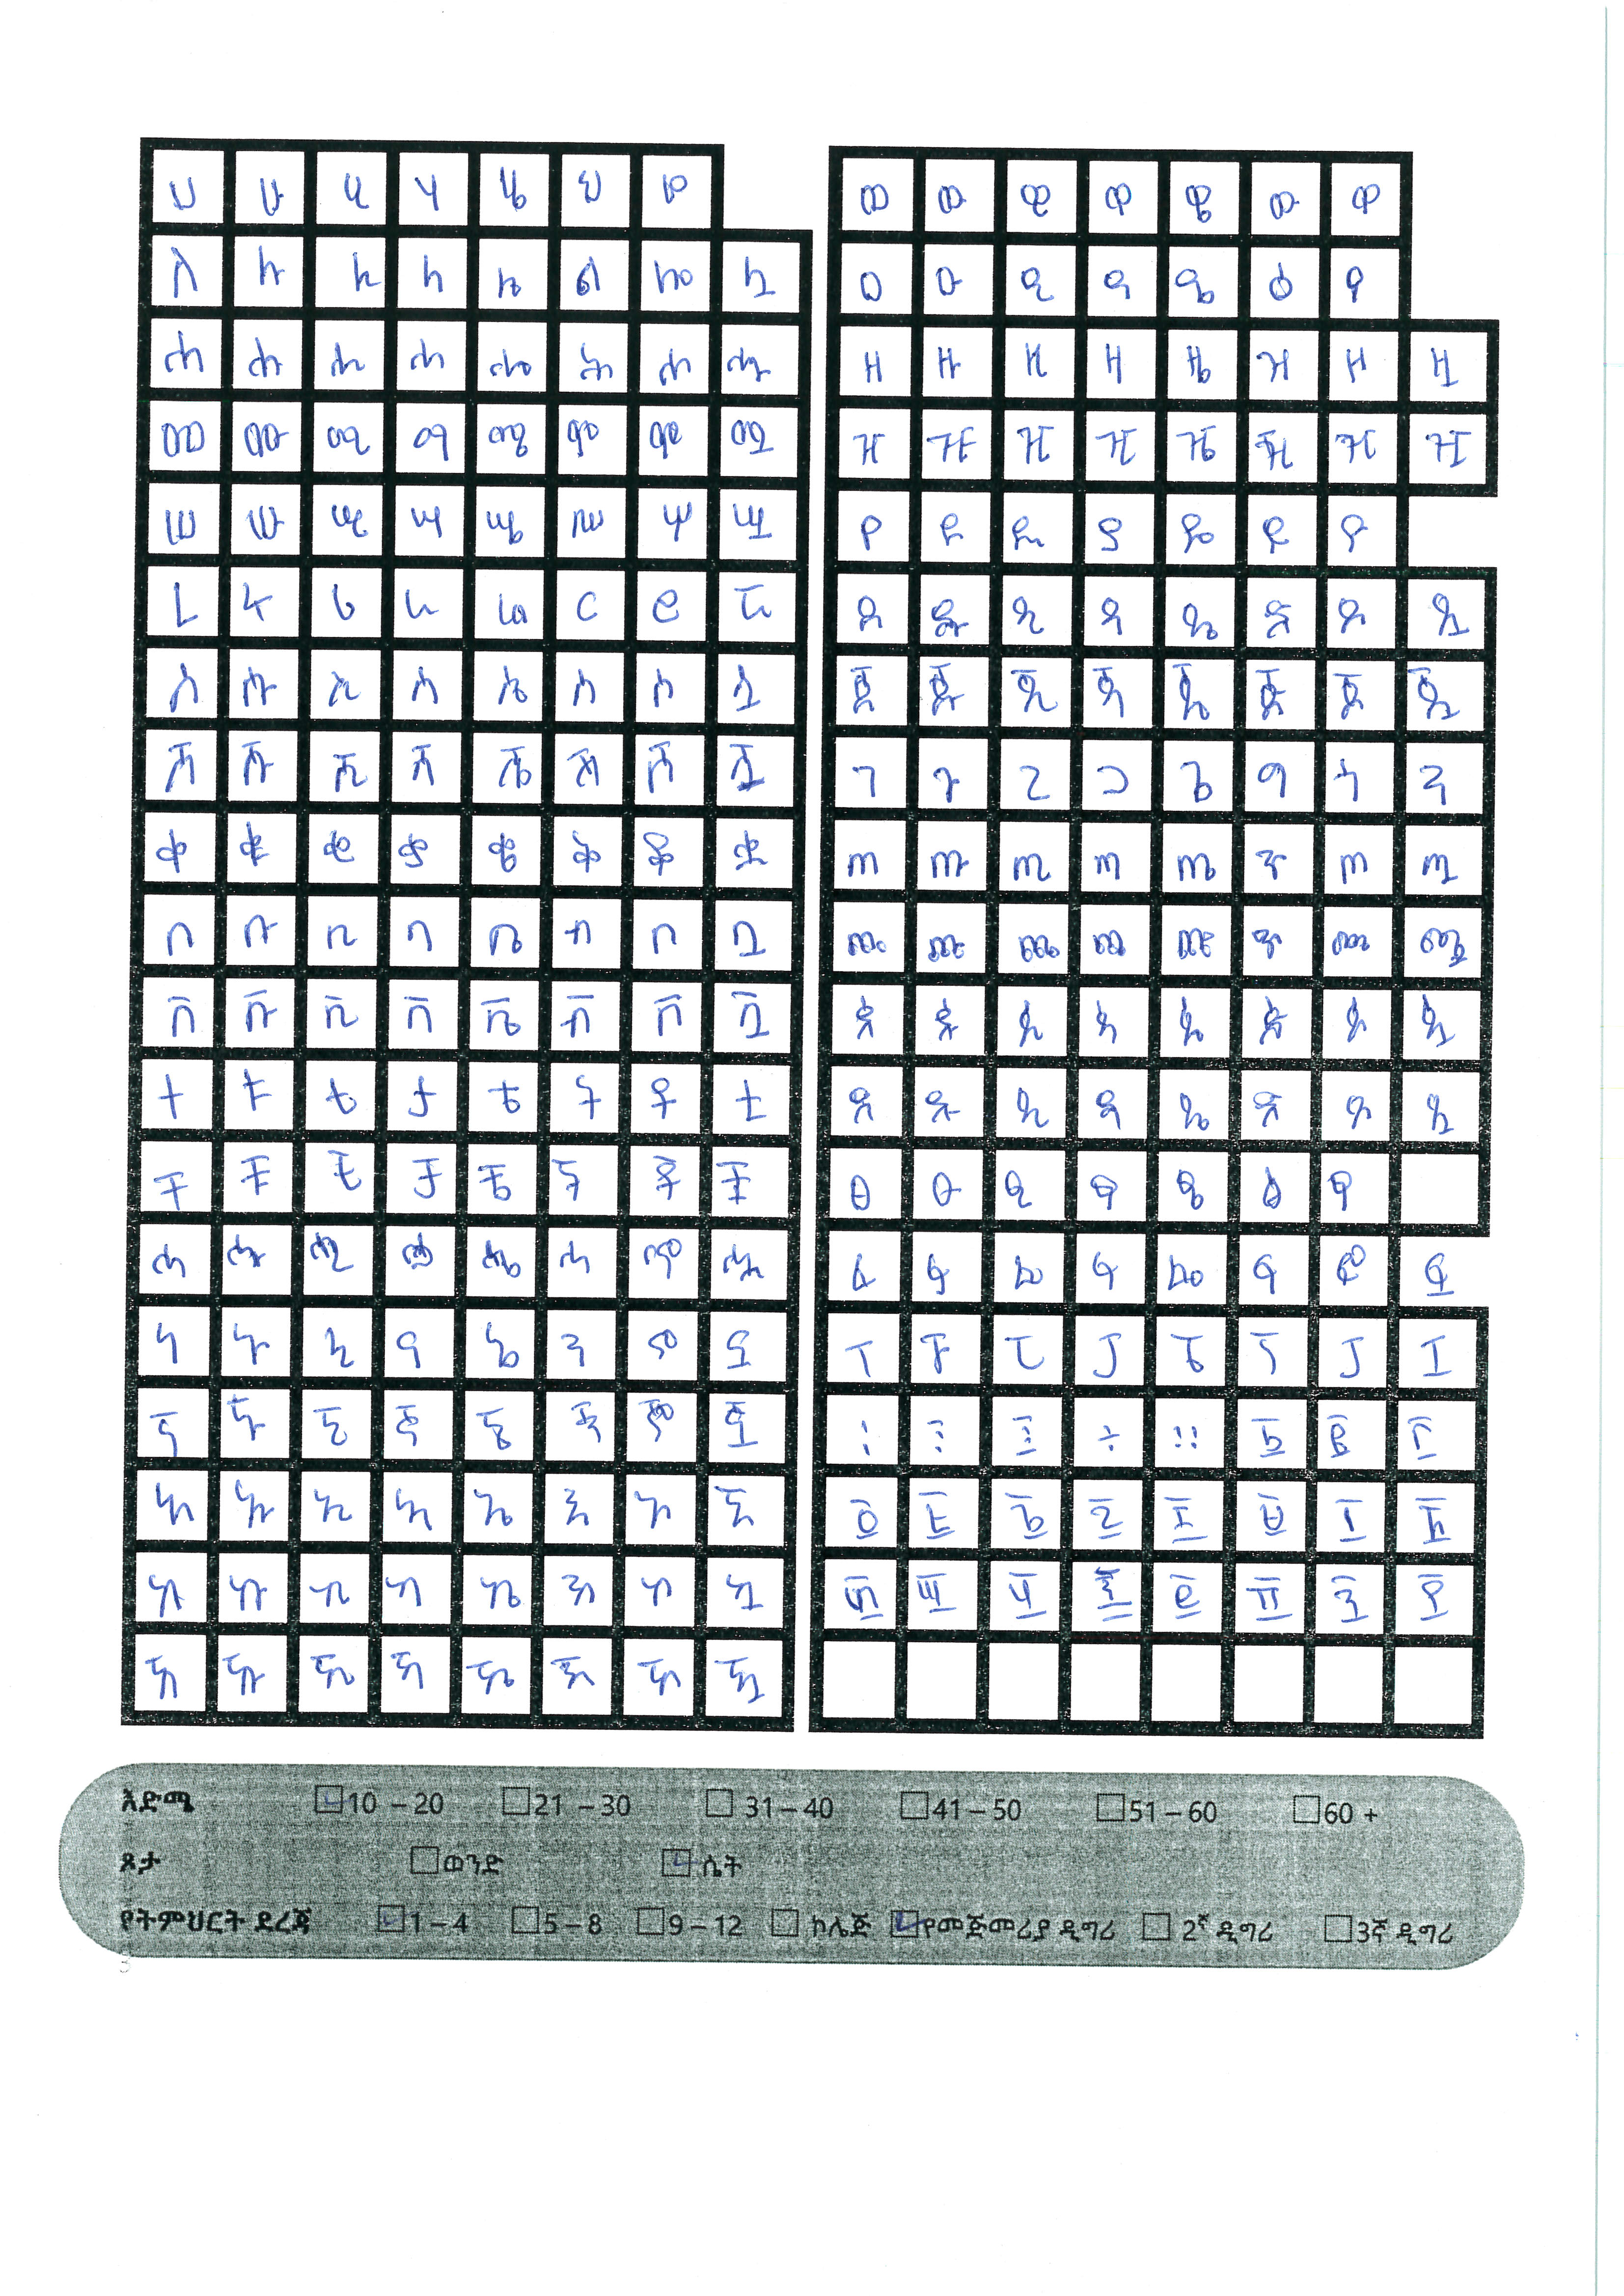 ሀ ሁ ሂ ሃ ሄ ህ ሆ
ለ ሉ ሊ ላ ሌ ል ሎ ሏ
ሐ ሑ ሒ ሓ ሔ ሕ ሖ ሗ
መ ሙ ሚ ማ ሜ ም ሞ ሟ
ሠ ሡ ሢ ሣ ሤ ሥ ሦ ሧ
ረ ሩ ሪ ራ ሬ ር ሮ ሯ
ሰ ሱ ሲ ሳ ሴ ስ ሶ ሷ
ሸ ሹ ሺ ሻ ሼ ሽ ሾ ሿ
ቀ ቁ ቂ ቃ ቄ ቅ ቆ ቋ
በ ቡ ቢ ባ ቤ ብ ቦ ቧ
ቨ ቩ ቪ ቫ ቬ ቭ ቮ ቯ
ተ ቱ ቲ ታ ቴ ት ቶ ቷ
ቸ ቹ ቺ ቻ ቼ ች ቾ ቿ
ኀ ኁ ኂ ኃ ኄ ኅ ኆ ኋ
ነ ኑ ኒ ና ኔ ን ኖ ኗ
ኘ ኙ ኚ ኛ ኜ ኝ ኞ ኟ
አ ኡ ኢ ኣ ኤ እ ኦ ኧ
ከ ኩ ኪ ካ ኬ ክ ኮ ኳ
ኸ ኹ ኺ ኻ ኼ ኽ ኾ ዃ
ወ ዉ ዊ ዋ ዌ ው ዎ
ዐ ዑ ዒ ዓ ዔ ዕ ዖ
ዘ ዙ ዚ ዛ ዜ ዝ ዞ ዟ
ዠ ዡ ዢ ዣ ዤ ዥ ዦ ዧ
የ ዩ ዪ ያ ዬ ይ ዮ
ደ ዱ ዲ ዳ ዴ ድ ዶ ዷ
ጀ ጁ ጂ ጃ ጄ ጅ ጆ ጇ
ገ ጉ ጊ ጋ ጌ ግ ጎ ጓ
ጠ ጡ ጢ ጣ ጤ ጥ ጦ ጧ
ጨ ጩ ጪ ጫ ጬ ጭ ጮ ጯ
ጰ ጱ ጲ ጳ ጴ ጵ ጶ ጷ
ጸ ጹ ጺ ጻ ጼ ጽ ጾ ጿ
ፀ ፁ ፂ ፃ ፄ ፅ ፆ
ፈ ፉ ፊ ፋ ፌ ፍ ፎ ፏ
ፐ ፑ ፒ ፓ ፔ ፕ ፖ ፗ
፡ ፤ ÷ ። ፩ ፪ ፫
፬ ፭ ፮ ፯ ፰ ፱ ፲ ፳
፴ ፵ ፶ ፷ ፸ ፹ ፺ ፻
እድሜ 10 – 20 21 – 30 31 – 40 41 – 50 51 – 60 60 +
ጾታ ወንድ ሴት
የትምህርት ደረጃ 1 – 4 5 – 8 9 – 12 ኮሌጅ የመጀመሪያ ዲግሪ 2ኛ ዲግሪ 3ኛ ዲግሪ